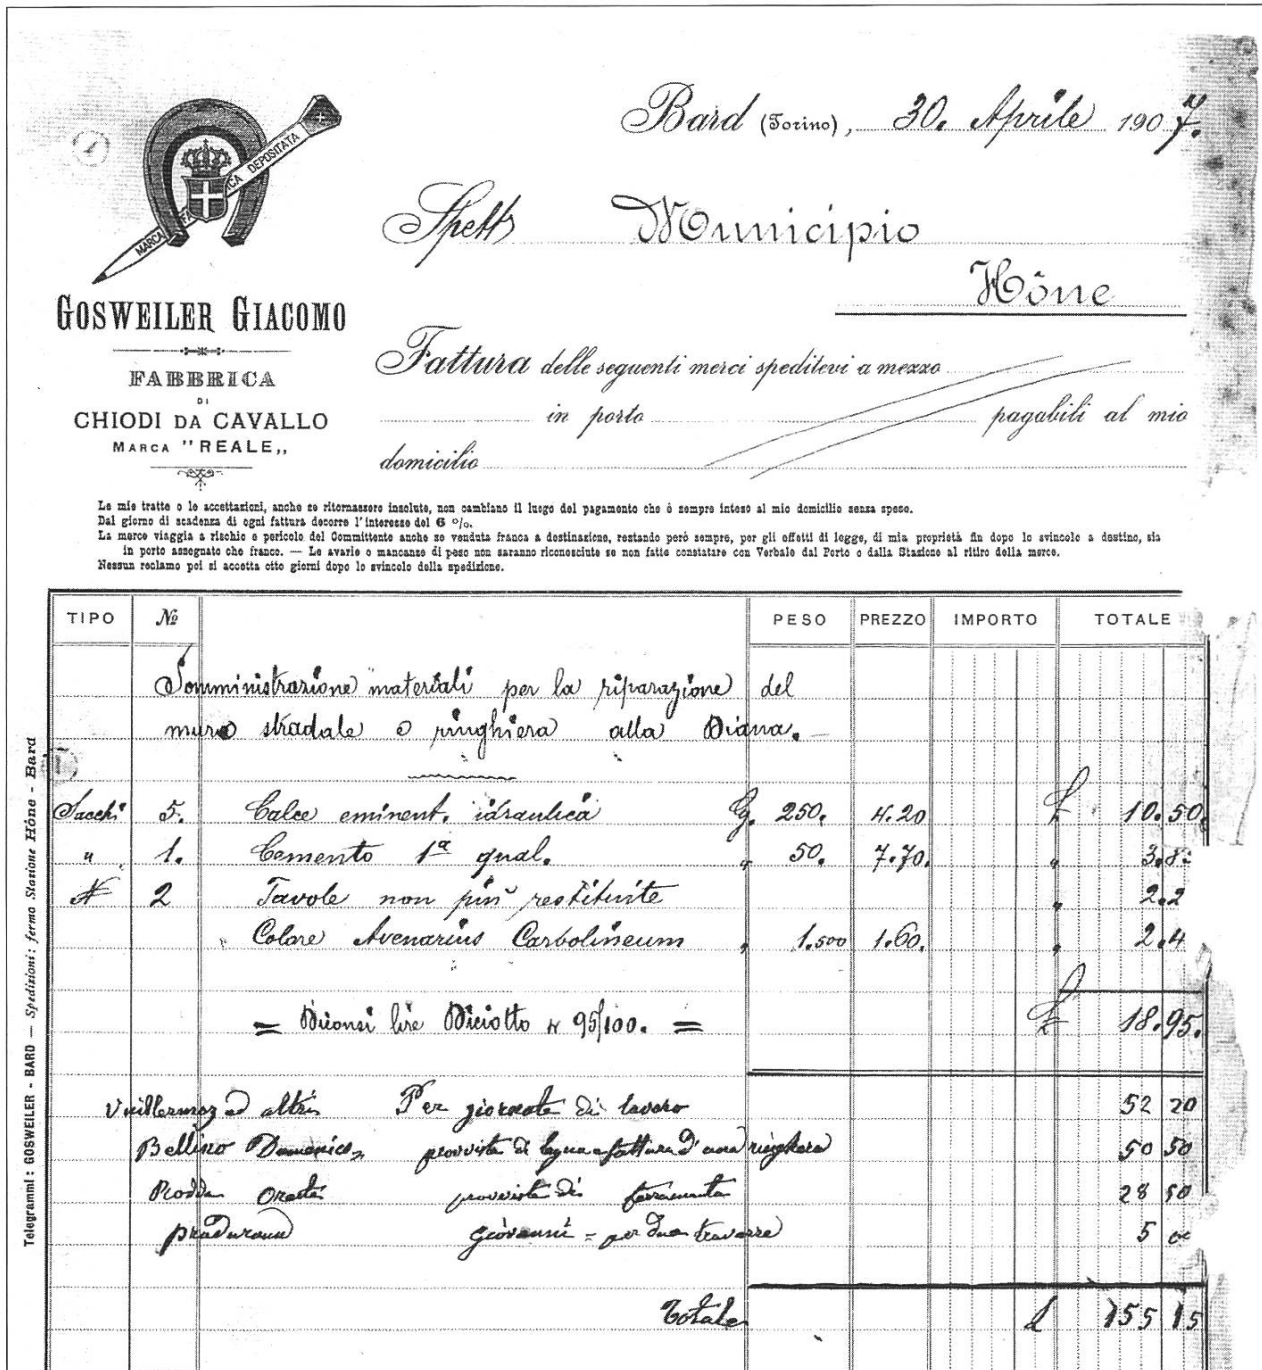 Bard (Torino), 30. Aprile 1907.
MARCA FABBRICA DEPOSITATA
Spett Municipio
Hône
GOSWEILER GIACOMO
FABBRICA
DI
CHIODI DA CAVALLO
MARCA "REALE„
Fattura delle seguenti merci speditevi a mezzo
in porto pagabili al mio
domicilio
Le mie tratte o le accettazioni, anche se ritornassero insolute, non cambiano il luogo del pagamento che è sempre inteso al mio domicilio senza spese.
Dal giorno di scadenza di ogni fattura decorre l'interesse del 6 %.
La merce viaggia a rischio e pericolo del Committente anche se venduta franca a destinazione, restando però sempre, per gli effetti di legge, di mia proprietà fin dopo lo svincolo a destino, sia
in porto assegnato che franco. — Le avarie o mancanze di peso non saranno riconosciute se non fatte constatare con Verbale dal Porto o dalla Stazione al ritiro della merce.
Nessun reclamo poi si accetta otto giorni dopo lo svincolo della spedizione.
TIPO № PESO PREZZO IMPORTO TOTALE
Somministrazione materiali per la riparazione del
muro stradale e ringhiera alla Diana.
Sacchi 5. Calce eminent. idraulica Cg. 250. 4.20 £ 10.50.
" 1. Cemento 1ª qual. " 50. 7.70. " 3.8
N 2 Tavole non più restituite " 2.2
Colore Avenarius Carbolineum " 1.500 1.60. " 2.4
= Diconsi lire Diciotto e 95/100. = £ 18.95.
Vuillermoz ed altri Per giornate di lavoro 52 20
Bellino Domenico, provvista di legna e fattura d'una ringhiera 50 50
Prodda Oreste provvista di ferramenta 28 50
Giovanni = per due traverse 5 00
Totale £ 155 15
Telegrammi: GOSWEILER - BARD — Spedizioni: fermo Stazione Hône - Bard